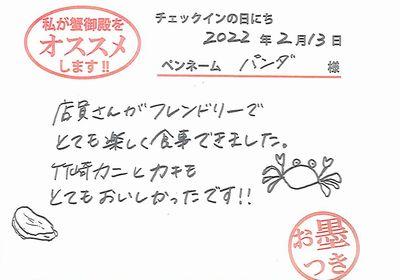 私が蟹御殿を
オススメ
します!!
チェックインの日にち
2022 年 2 月 13 日
ペンネーム パンダ 様
店員さんがフレンドリーで
とても楽しく食事できました。
竹崎カニとカキも
とてもおいしかったです!!
お墨
つき